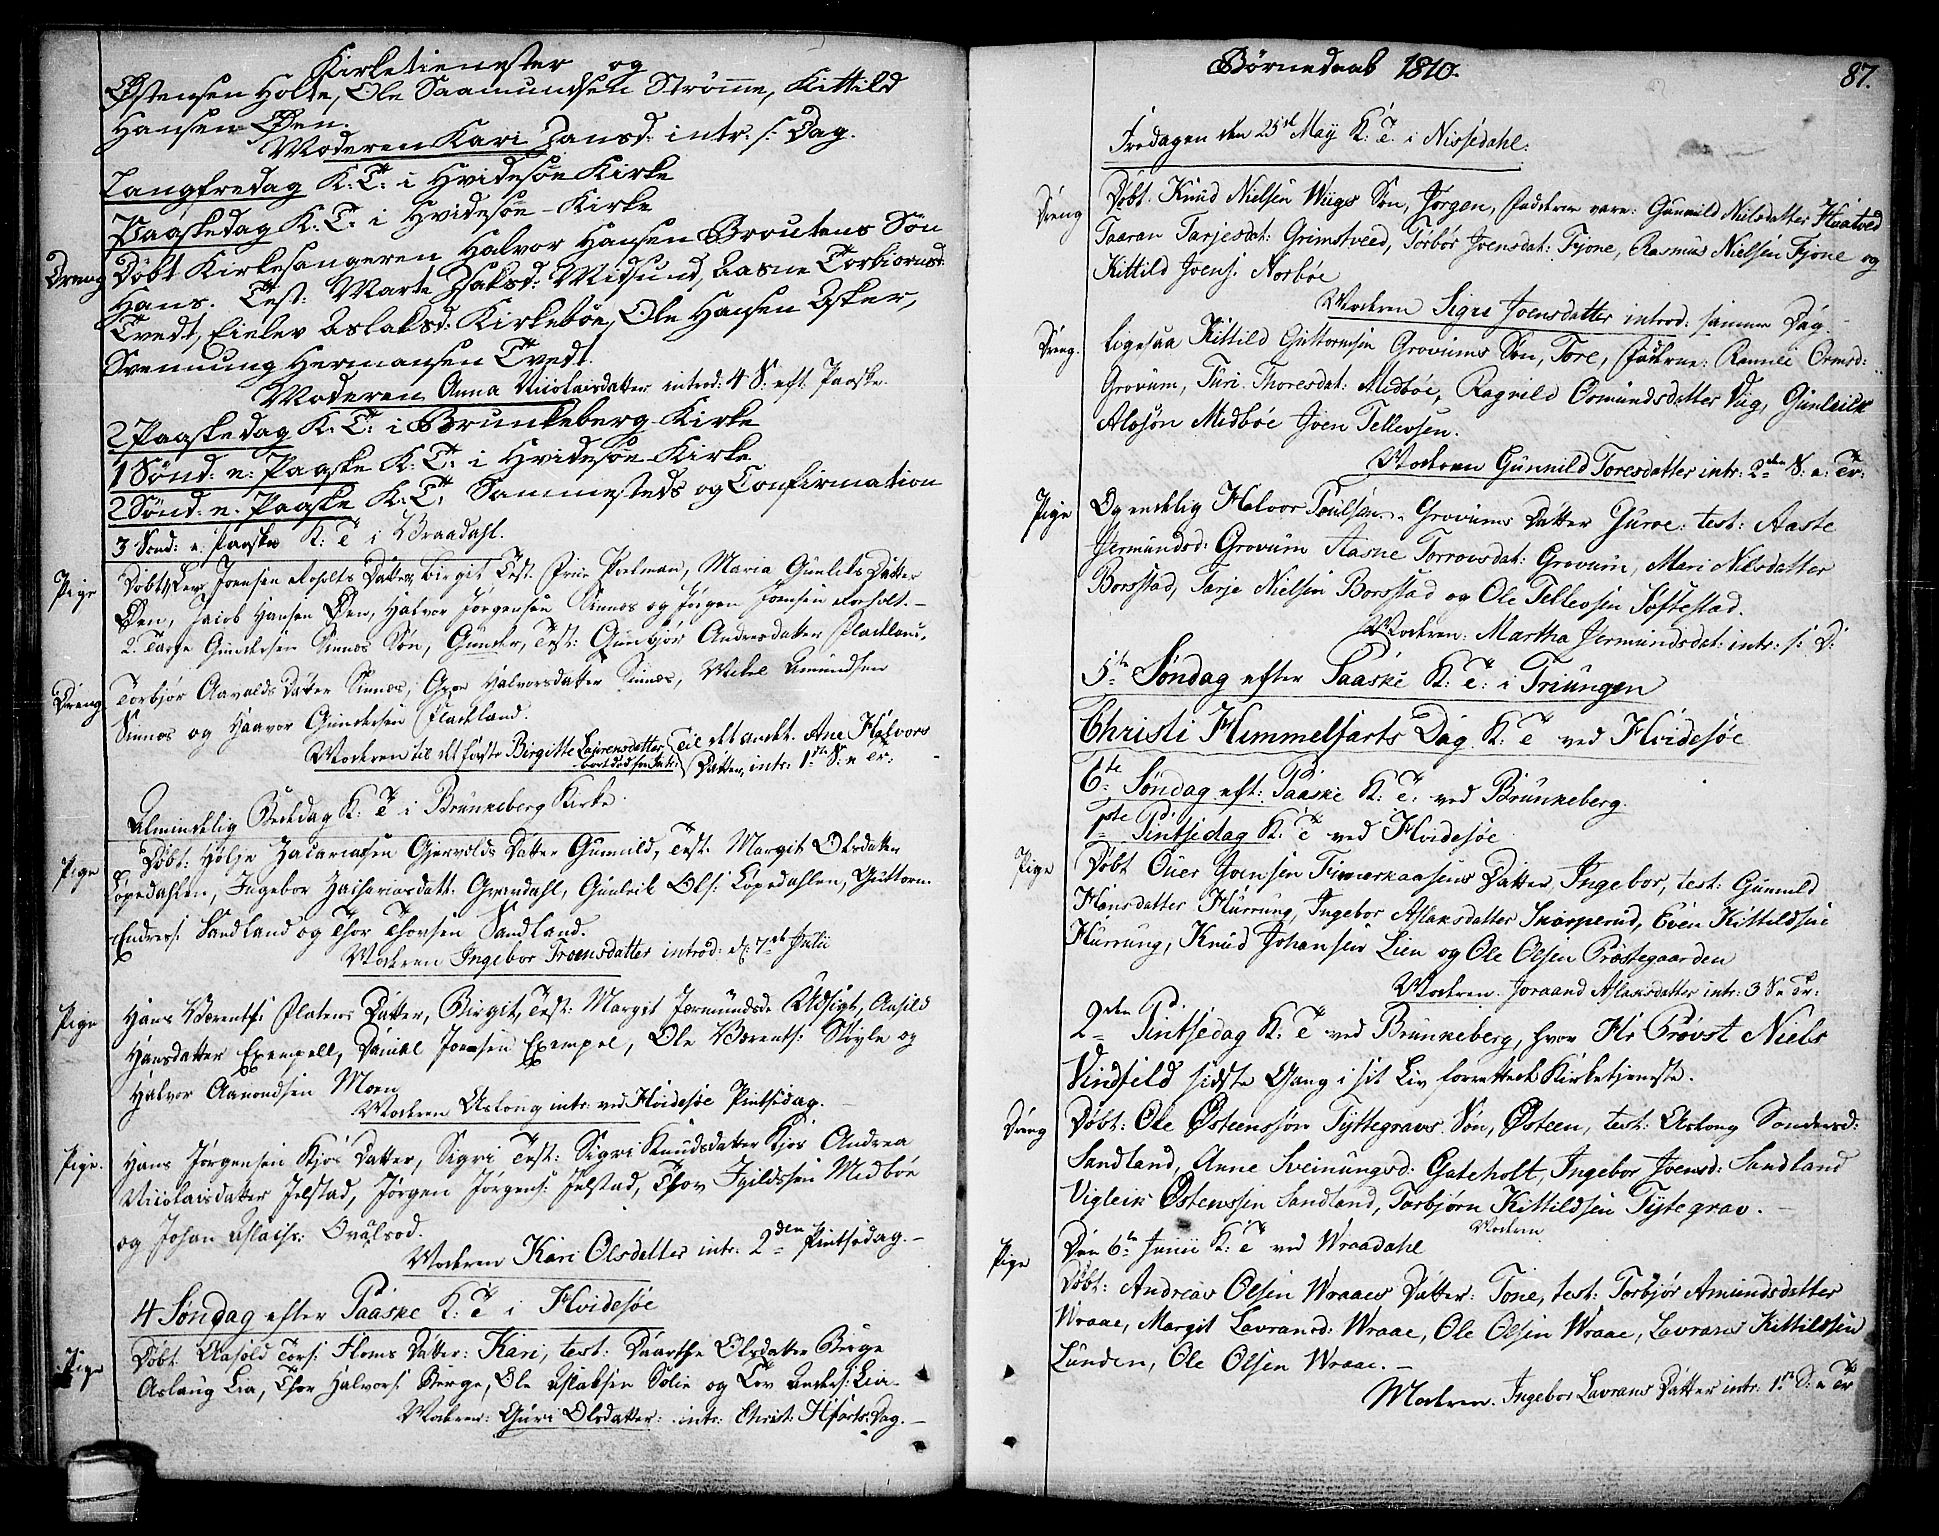 Kirketienester og
Østensen Holte, Ole Saamundsen Strømme, Kittild
Hansen Øen.
Moderen Kari Jansd: intr: s: Dag.
Langfredag K: T: i Hvidesøe Kirke
Paaskedag K: T: i Hvidesøe Kirke
Dreng Døbt Kirkesangeren Halvor Hansen Broutens Søn
Hans. Test: Marte Isaksd: Midsund, Aasne Torbiørnsd:
Tvedt, Eielev Aslaksd: Kirkebøe, Ole Hansen Asker,
Svennung Hermansen Tvedt.
Moderen Anna Nicolaisdatter introd: 4 S: eft: Paaske.
2 Paaskedag K: T: i Brunkeberg Kirke
1 Sønd: e: Paaske K: T: i Hvidesøe Kirke
2 Sønd: e: Paaske K: T: Sammesteds og Confirmation
3 Sønd: e: Paaske K: T: i Vraadahl.
Pige Døbt Joensen Datter Birgit Test: Maria Gunleks Datter
Øen, Jacob Hansen Øen, Halvor Jørgensen Sinnes og Jørgen Joensen
2. Tarje Gundersen Sinnes Søn, Gunder, Test: Gunbjør Andersdatter Flackland,
Dreng Torbjør Aavalds Datter Sinnes, Halvorsdatter Sinnes, Amundsen
Sinnes og Haavor Gundersen Flackland.
Moderen til det første Birgitte Laurensdatter Til det andet. Ane Halvors
Datter, intr: 1ste S: e Tr:
Almindelig Bededag K: T: i Brunkeberg Kirke.
Pige Døbt: Hølje Zacariasen Gjervolds Datter Gunnild, Test: Margit Olsdatter
Løpedahlen, Ingebor Zachariasdatt: Grændahl, Gunleik Ols: Løpedahlen, Guttorm
Enders: Sandland og Thor Thorsen Sandland.
Moderen Ingebor Troensdatter introd: d: 7de Julii
Pige Hans Børents: Platens Datter, Birgit, Test: Margit Jormundsd: Udsigt, Aasild
Hansdatter Exempell, Daniel Joensen Exempel, Ole Børents: Støyle og
Halvor Aanondsen Moen
Moderen Asloug intr: ved Hvidesøe Pintsedag.
Pige. Hans Jørgensen Kjøs Datter, Sigri Test: Sigri Knudsdatter Kjøs Andrea
Nicolaisdatter Jelstad, Jørgen Jørgens: Jelstad, Thov Igildssen Midbøe
og Johan Aslachs:
Moderen Kari Olsdatter intr: 2den Pintsedag.
4 Søndag efter Paaske K: T: i Hvidesøe
Pige Døbt: Aasold Tors: Floms Datter: Kari, test: Daarthe Olsdatter Berge
Aslaug Lia, Thor Halvors: Berge, Ole Aslaksen Solie og Tov Anders: Lia.
Moderen: Guri Olsdatter: intr: Christ: Hfarts: Dag.
Børnedaab 1810. 87.
Fredagen den 25de May K: T: i Nissedahl:
Dreng Døbt. Knud Nielsen Wiigs Søn, Jørgen, Faddere vare: Gunnild Nielsdatter Haatved
Taaran Tarjesdat: Grimstveed, Torbør Joensdat: Fjone, Rasmus Nielsen Fjone og
Kittild Joens: Norbøe
Moderen Sigri Joensdatter introd: samme Dag.
Dreng. Ligesaa Kittild Guttormsen Grovums Søn, Tore, Fadderne: Rannei Ormsd:
Grovum, Turi Thoresdat: Midbøe, Ragnild Osmundsdatter Viig, Gunleik
Alosøn Midbøe Joen Tellevsen.
Moderen Gunnild Toresdatter intr: 2den S: e: Tr:
Pige Og endelig Halvor Poulsøn Grovums Datter Guroe: test: Aaste
Jermundsd: Grovum Aasne Torrovsdat: Grovum, Mari Nilsdatter
Borsstad, Tarje Nielsen Borsstad og Ole Tellevsen Søftestad.
Moderen: Martha Jermundsdat: intr: s: D:
5te Søndag efter Paaske K: T: i Triungen
Christi Himmelfarts Dag K: T: ved Hvidesøe
6te Søndag eft: Paaske K: T: ved Brunkeberg.
1ste Pintsedag K: T: ved Hvidesøe
Pige Døbt Ouer Joensen Fimerkaasens Datter, Ingebor, test: Gunnild
Hansdatter Hurrung, Ingebor Aslaksdatter Skorperud, Even Kittildsen
Hurrung, Knud Johansen Lien og Ole Olsen Præstegaarden
Moderen. Joraand Aslaksdatter intr: 3 S: e Tr:
2den Pintsedag K: T: ved Brunkeberg, hvor Hr Provst Niels
Vindfeld sidste Gang i sit Liv forrettede Kirketjeneste.
Dreng Døbt: Ole Østeenssøn Tyttegravs Søn, Østeen, test: Aslong Sondersd:
Sandland, Anne Sveinungsd: Gateholt, Ingebor Joensd: Sandland
Vigleik Østenssen Sandland, Torbjørn Kittildsen Tytegrav.
Moderen
Den 6te Junii K: T: ved Wraadahl
Pige Døbt: Andreas Olsen Wraaes Datter: Tone, test: Torbjør Amundsdatter
Wraae, Margit Lavransd: Wraae, Ole Olsen Wraae, Lavrans Kittildsen
Lunden, Ole Olsen Wraae.
Moderen. Ingebor Lavrans Datter intr: 1ste S: e Tr